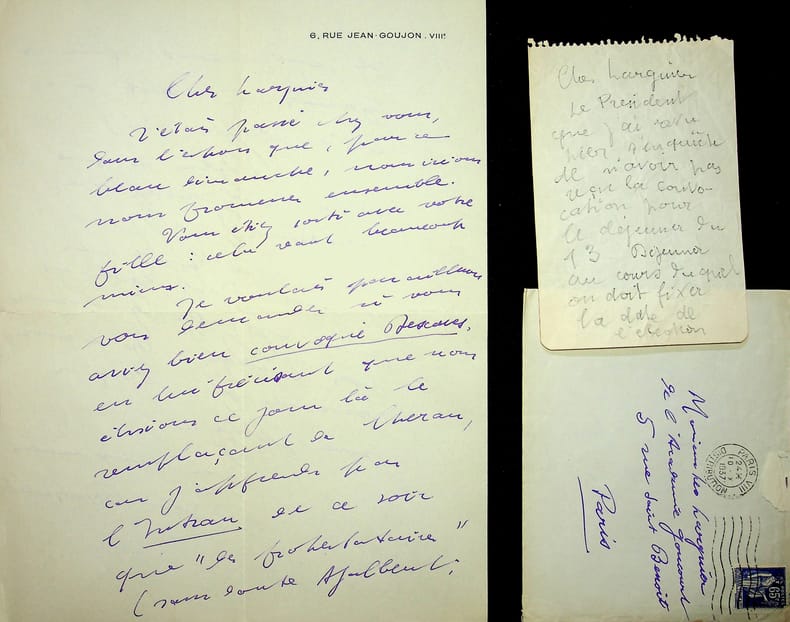 6, RUE JEAN-GOUJON. VIIIe
Cher Larguier
J'étais passé chez vous,
dans l'espoir que, par ce
beau dimanche, nous irions
nous promener ensemble.
Vous étiez sorti avec votre
fille : cela vaut beaucoup
mieux.
Je voulais par ailleurs
vous demander si vous
aviez bien convoqué Descaves,
en lui précisant que nous
élisions ce jour là le
remplaçant de Chérau,
car j'apprends par
l'Intran de ce soir
que "les protestataires"
(sans doute Ajalbert,
Cher Larguier
Le Président
que j'ai vu
hier s'inquiète
de n'avoir pas
reçu la convo-
cation pour
le déjeuner du
13 Déjeuner
au cours duquel
on doit fixer
la date de
l'élection
Monsieur Léo Larguier
de l'Académie Goncourt
5 rue Saint Benoit
Paris
PARIS VIII
1937
DISTRIBUTION
65c